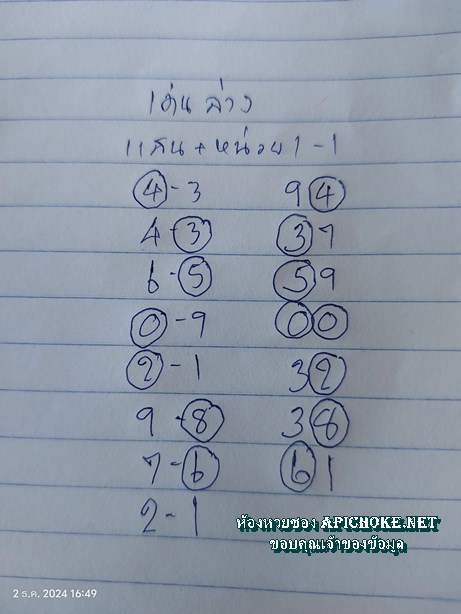 เด่น ล่าง
แสน + หน่วย 1 - 1
4 - 3 94
4 - 3 37
6 - 5 59
0 - 9 00
2 - 1 32
9 - 8 38
7 - 6 61
2 - 1
ห้องหวยซอง APICHOKE.NET
ขอบคุณเจ้าของข้อมูล
2 ธ.ค. 2024 16:49